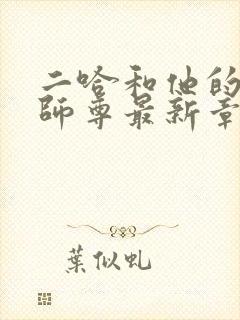 二哈和他的
师尊最新章
葉似虬